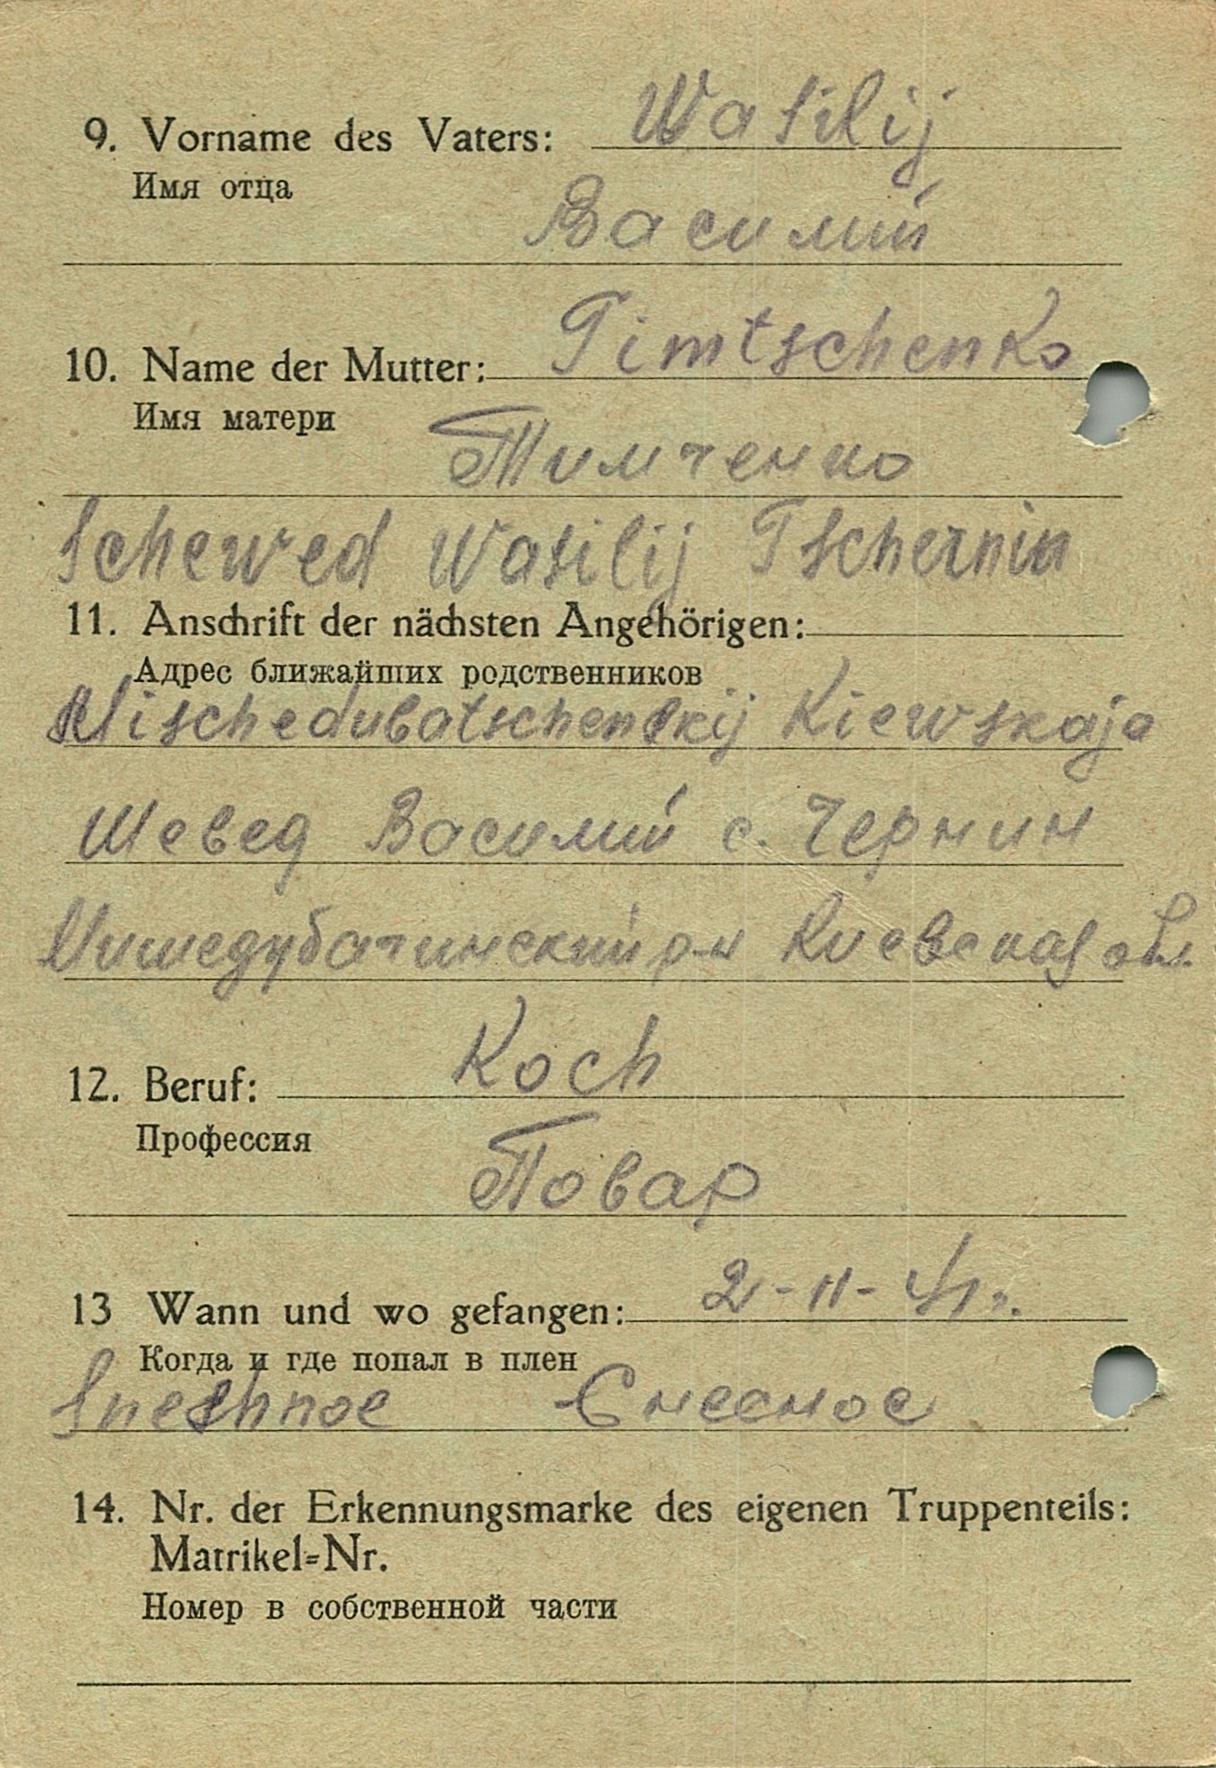 9. Vorname des Vaters: Wasilij
Имя отца
Василий
10. Name der Mutter: Timtschenko
Имя матери
Тимченко
Schewed Wasilij Tschernin
11. Anschrift der nächsten Angehörigen:
Адрес ближайших родственников
Mischedubatschenskij Kiewskaja
Шевед Василий с. Чернин
Мишедубачинский р-н Киевская обл.
12. Beruf: Koch
Профессия
Повар
13 Wann und wo gefangen: 2-11-41г.
Когда и где попал в плен
Sneshnoe Снесное
14. Nr. der Erkennungsmarke des eigenen Truppenteils:
Matrikel=Nr.
Номер в собственной части